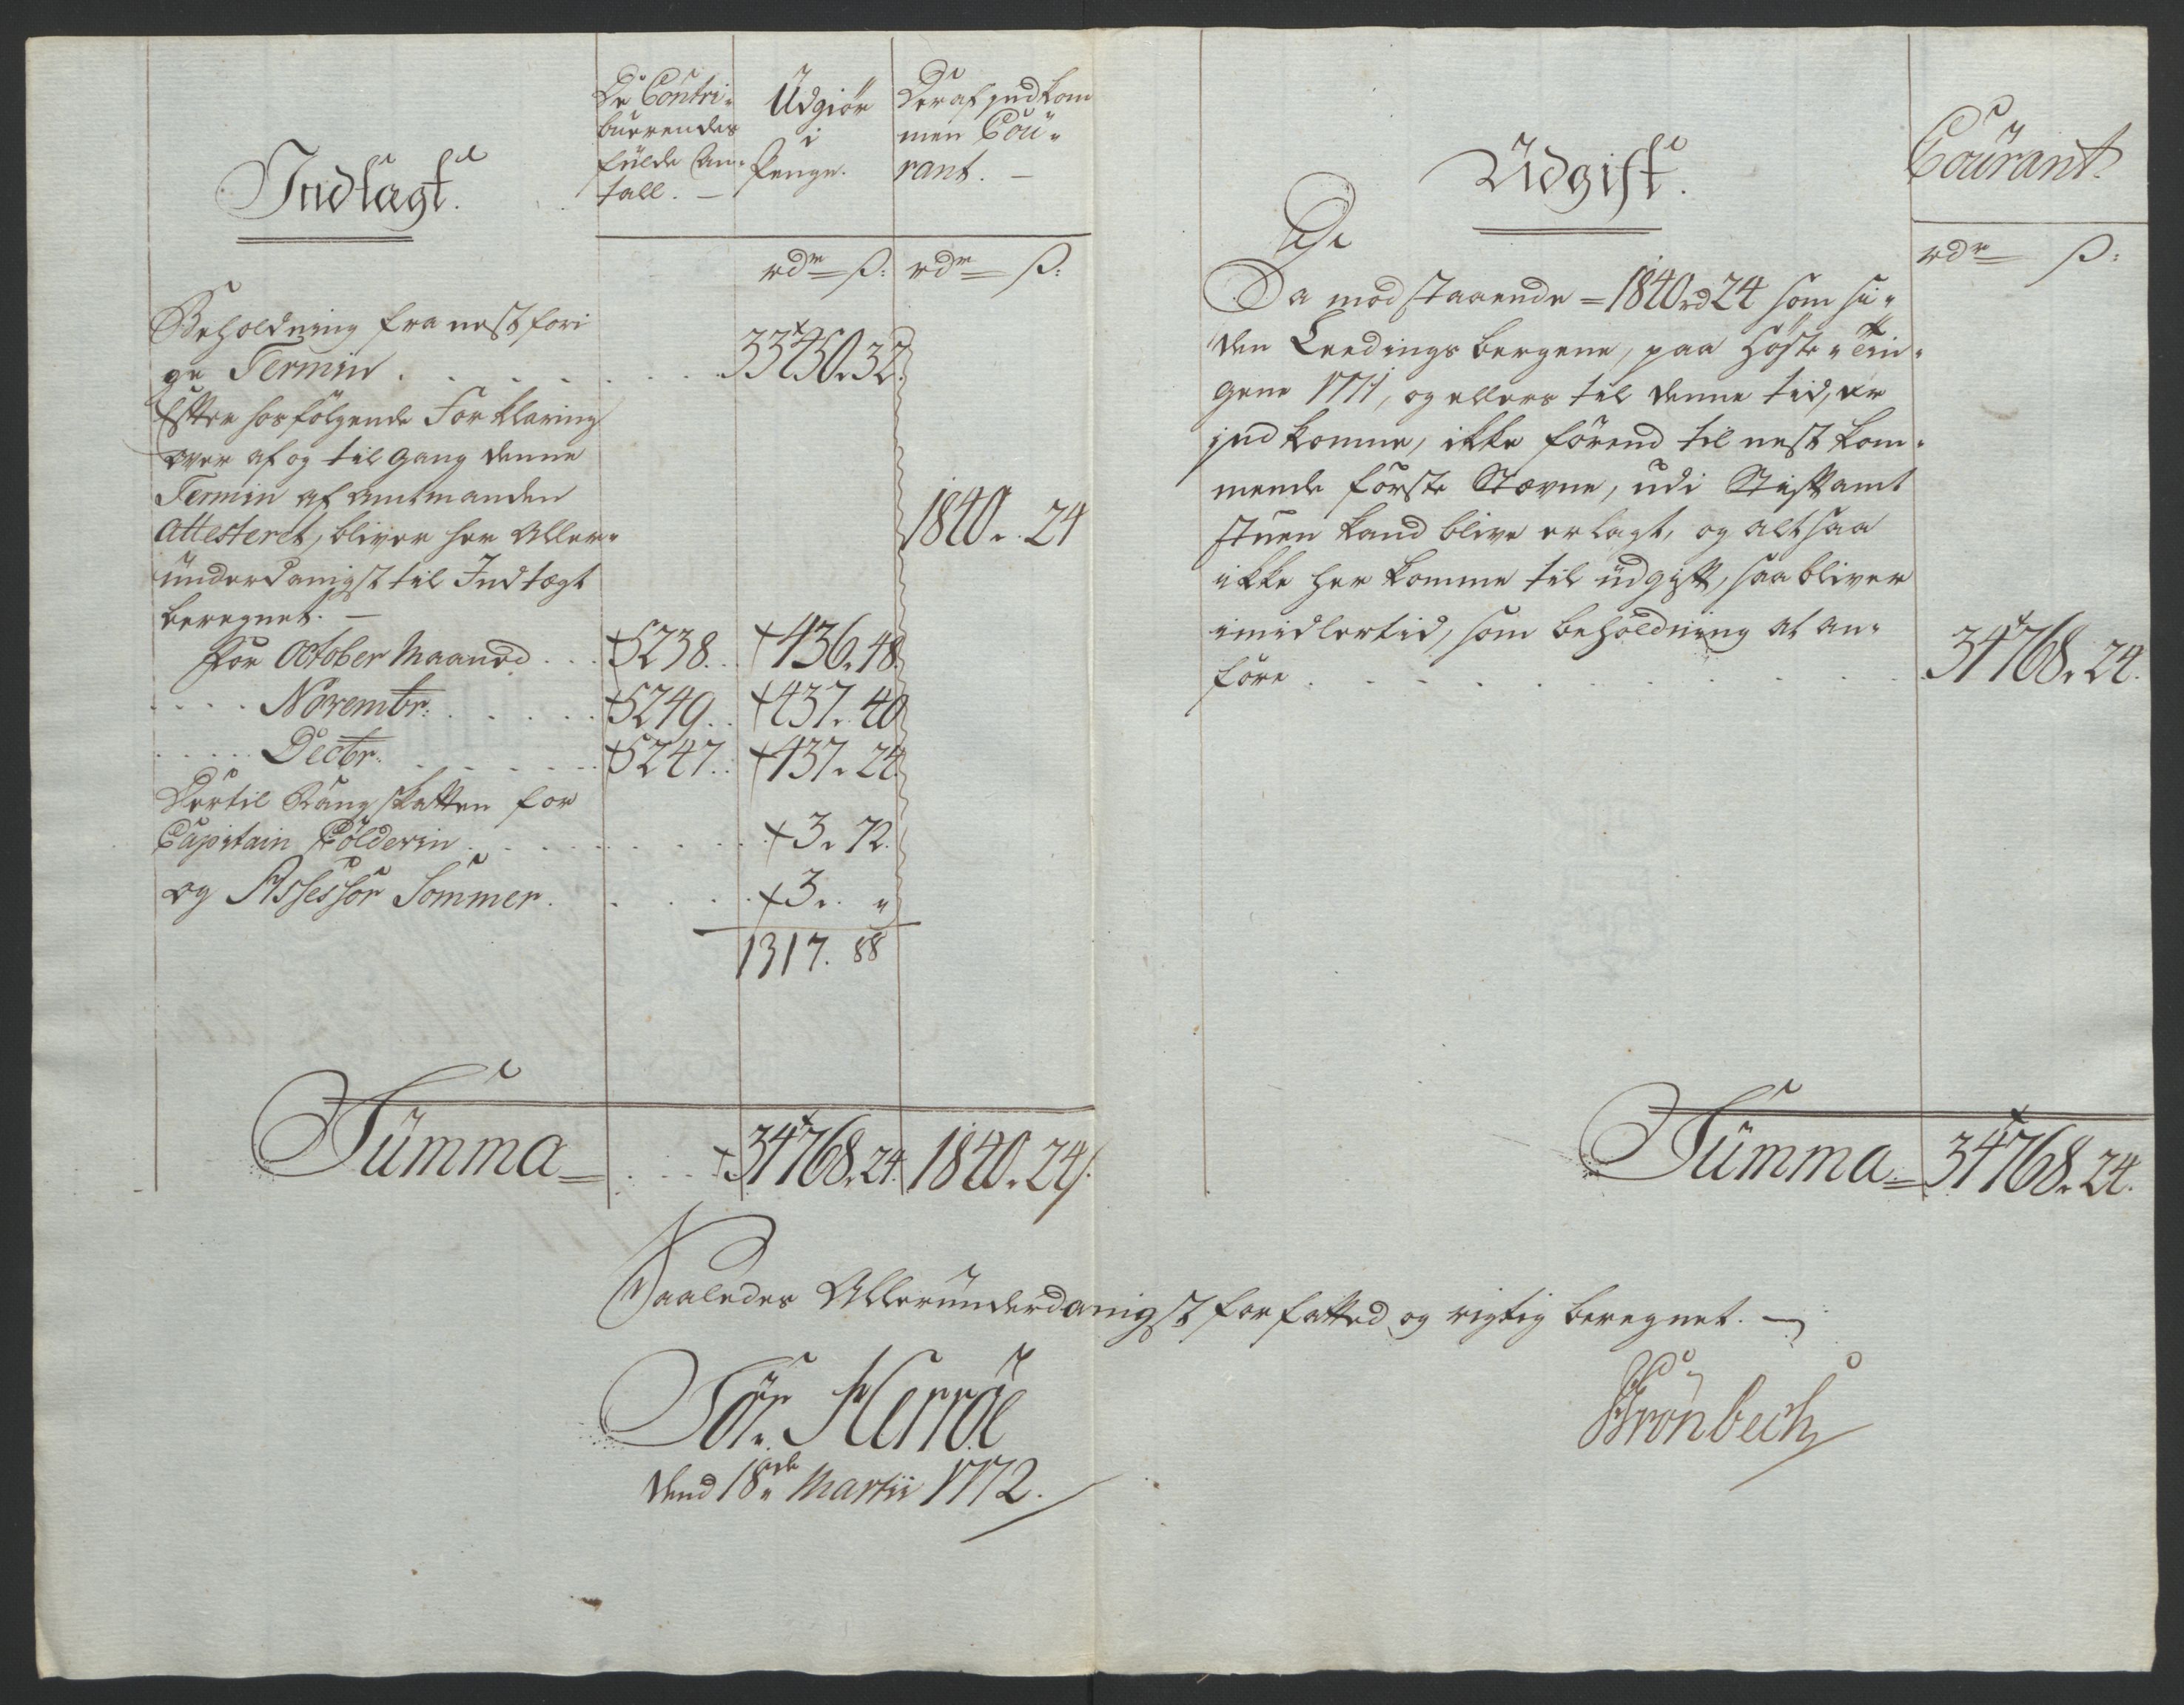 Indtægt.
De Contri-
buerendes
fulde An-
tall. —
Udgiør
i
Penge.
Deraf jndkom
men Cou-
rant. —
rdr ß: rdr ß:
Beholdning fra nestfori
ge Termin . . . . . . . 33450. 32.
Efter hosfølgende Forklaring
over af og til gang denne
Termin af Amtmanden
Attesteret, bliver her Aller-
underdanigst til Indtægt
beregnet. — 1840. 24
For October Maaned . . . 5238. . 436. 48.
. . . . Novembr: . . . . . 5249. . 437. 40
. . . . Decbr: . . . . . 5247. . 437. 24.
Dertil Rangskatten for
Capitain Pölderin . . . . . 3. 72.
og Assessor Sommer. . . . . 3. "
1317. 88
Summa = . . . 34768. 24. 1840. 24.
Udgift.
Courant.
rdr ß:
Da modstaaende = 1840 rd 24 som si-
den Leedingsbergene, paa Høste-Tin-
gene 1771, og ellers til denne tid, er
jndkomne, ikke førend til nestkom-
mende første Stævne, udi Stiftamt
stuen kand blive erlagt, og altsaa
ikke her komme til udgift, saa bliver
imidlertid, som beholdning at an-
føre . . . . . . . . . . 34768. 24.
Summa = 34768. 24.
Saaledes Allerunderdanigst forfatted og rigtig beregnet. —
Sör. Herröe
dend 18de Martii 1772.
Grønbech